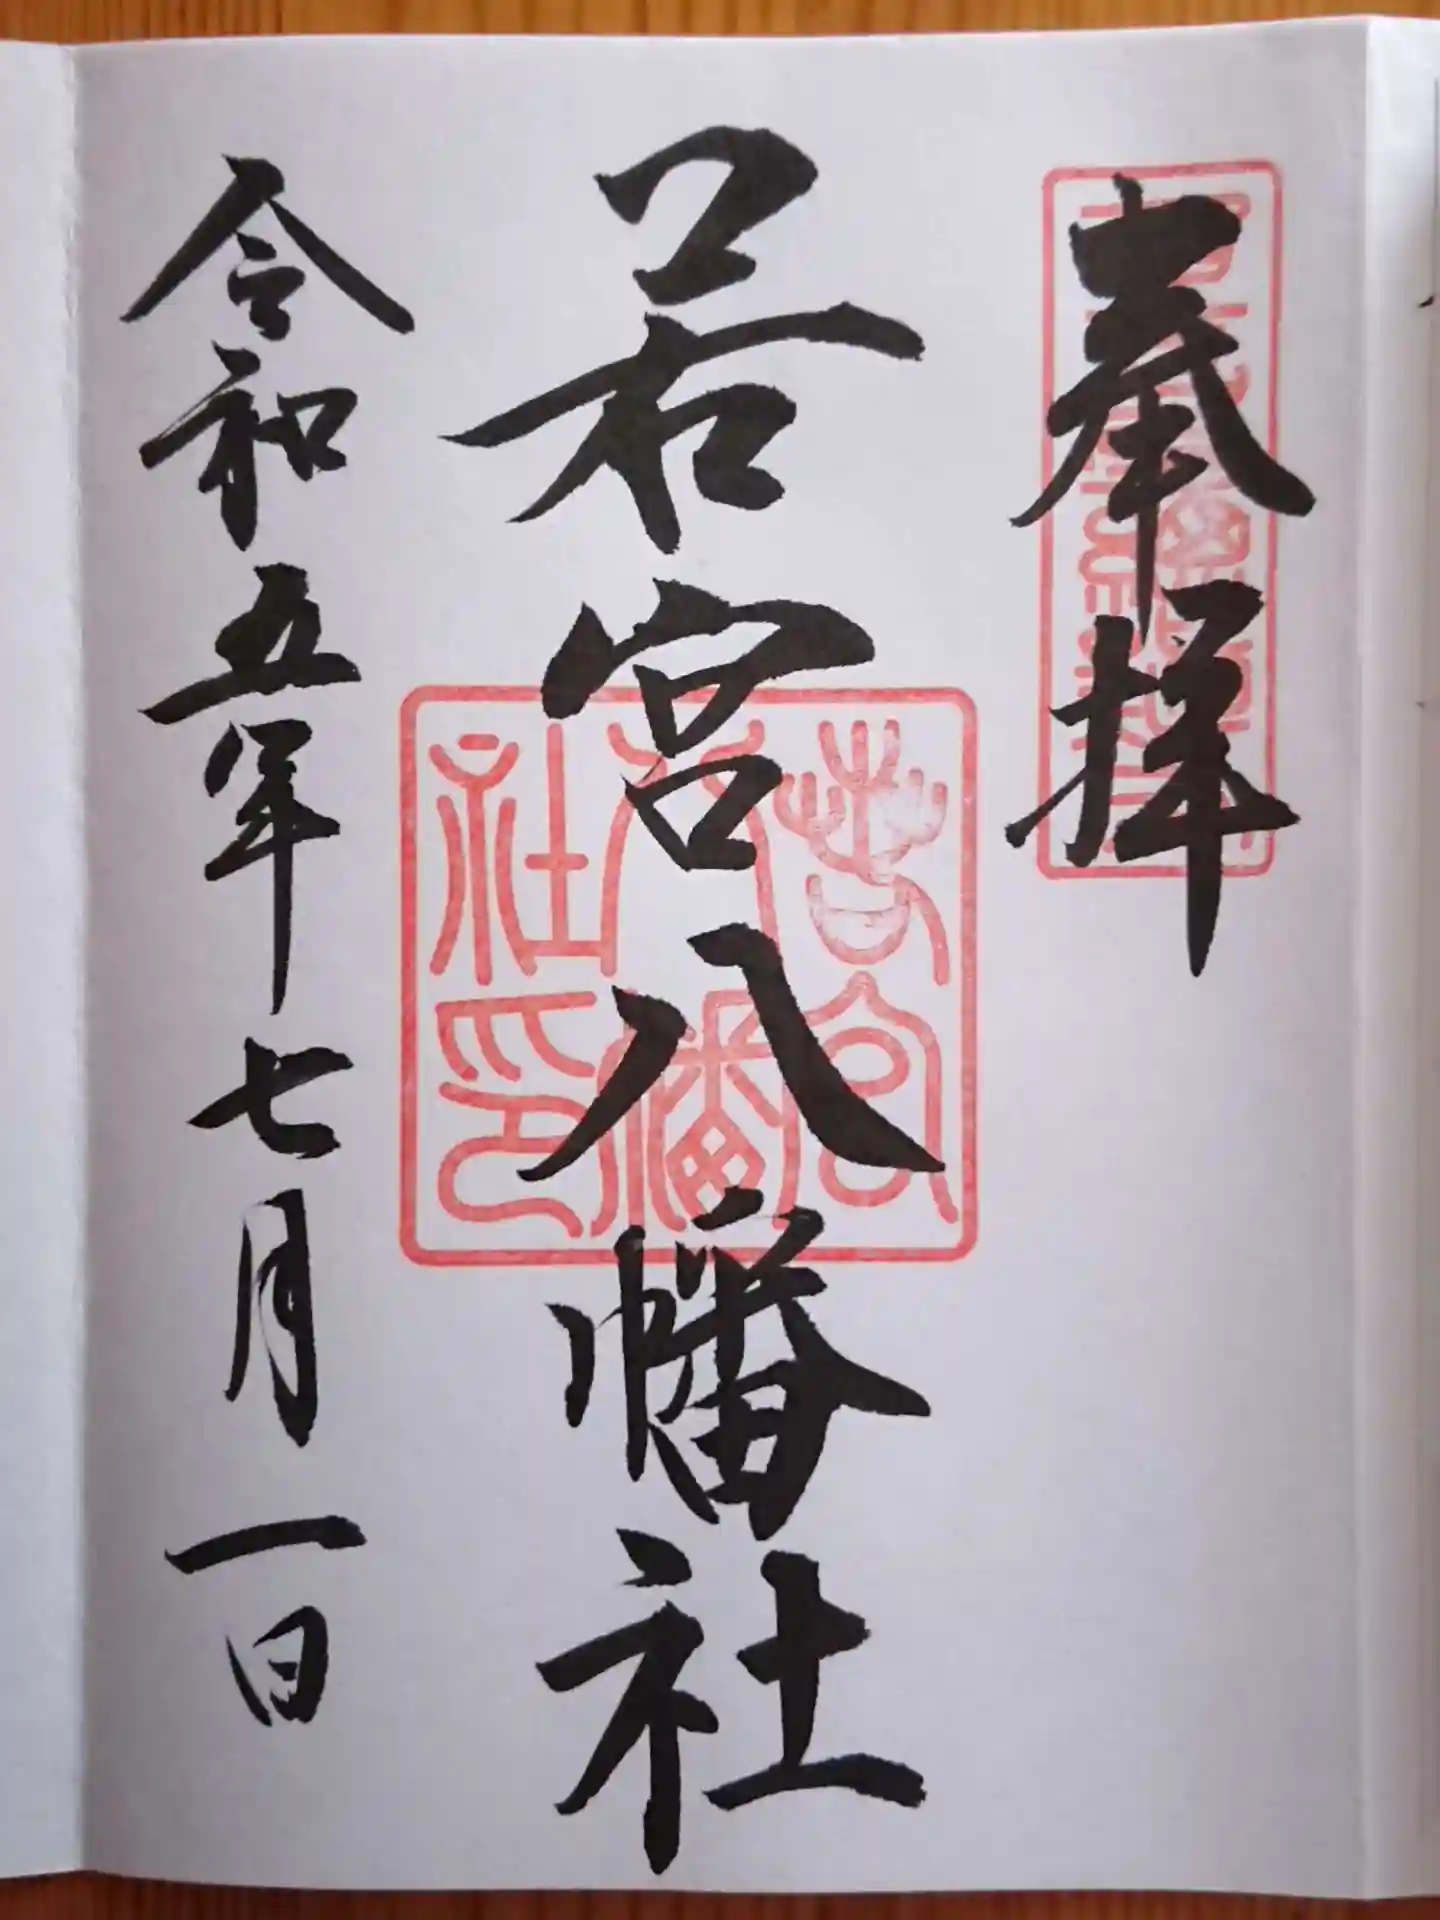 奉拝
若宮八幡社
若宮八幡社印
令和五年七月一日